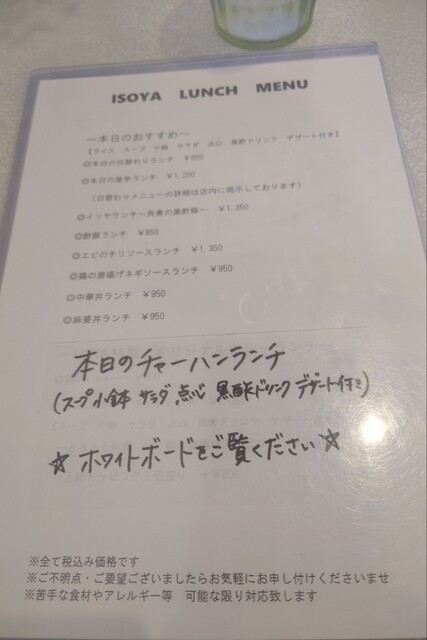 ISOYA LUNCH MENU
～本日のおすすめ～
【ライス スープ 小鉢 サラダ 点心 黒酢ドリンク デザート付き】
◎本日の日替わりランチ ￥850
◎本日の激辛ランチ ￥1,200
（日替わりメニューの詳細は店内に掲示しております）
◎イソヤランチ～角煮の黒酢豚～ ￥1,350
◎酢豚ランチ ￥950
◎エビのチリソースランチ ￥1,350
◎鶏の唐揚げネギソースランチ ￥950
◎中華丼ランチ ￥950
◎麻婆丼ランチ ￥950
本日のチャーハンランチ
(スープ 小鉢 サラダ 点心 黒酢ドリンク デザート付き)
☆ ホワイトボードをご覧ください ☆
※全て税込み価格です
※ご不明点・ご要望ございましたらお気軽にお申し付けくださいませ
※苦手な食材やアレルギー等 可能な限り対応致します